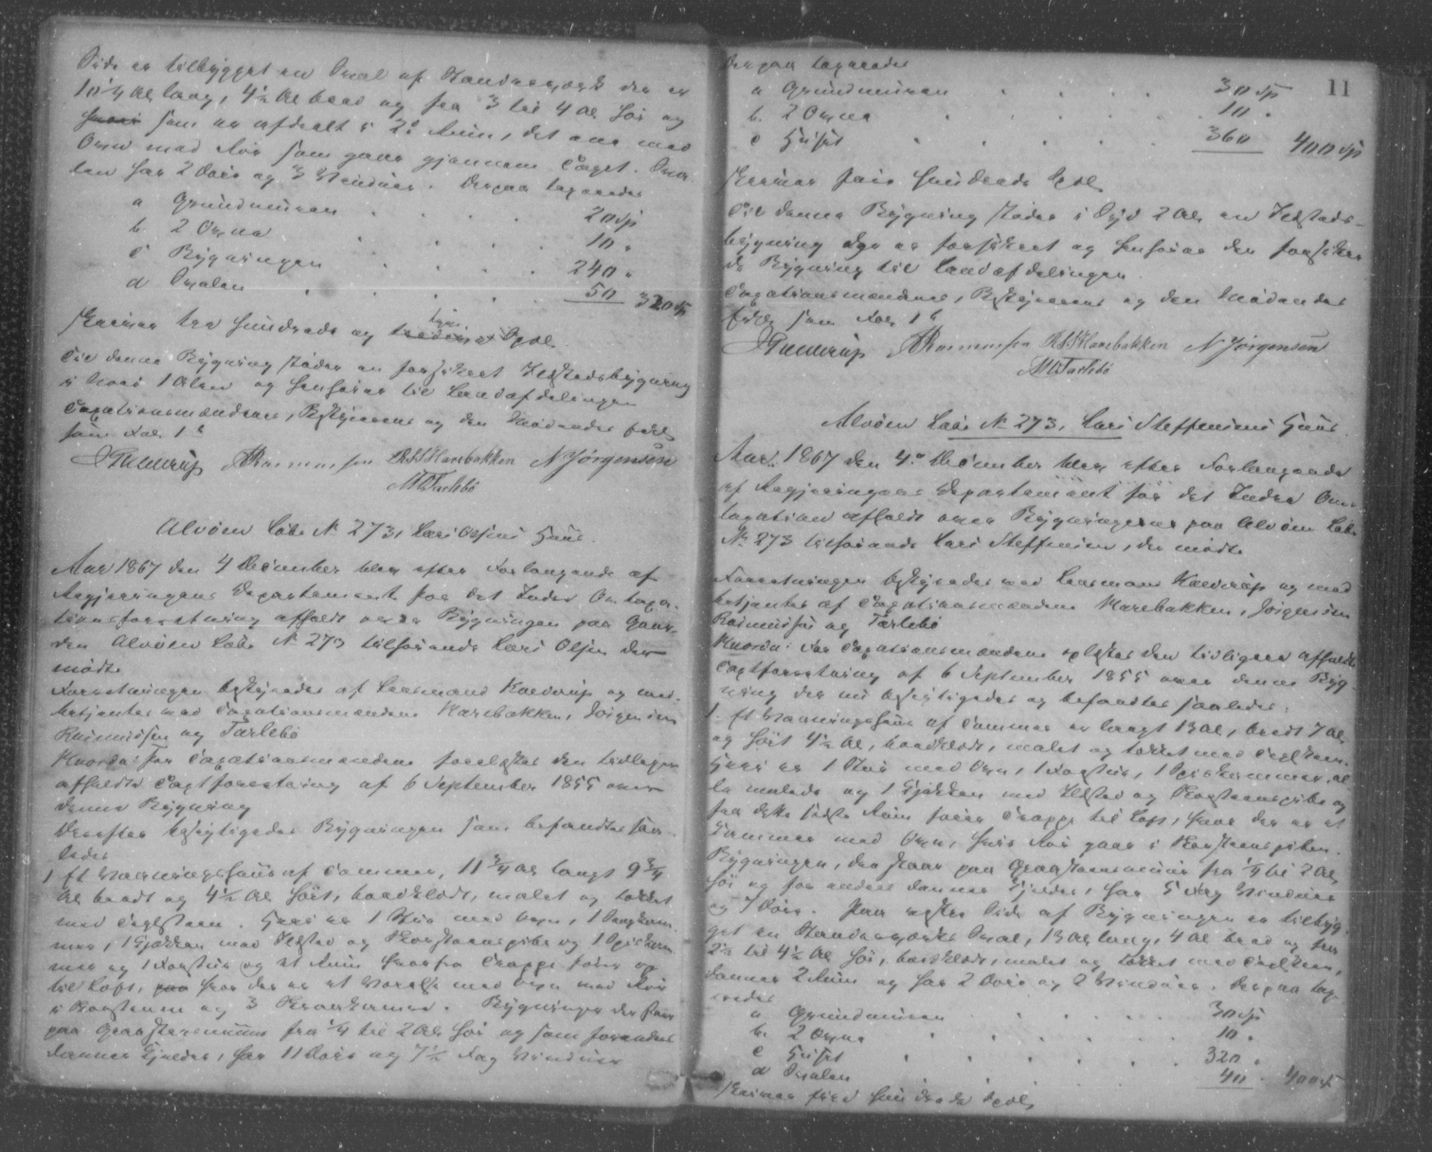 Side er tilbygget en Sval af Standerverk der er
10 1/4 Al lang, 4 1/2 Al bred og fra 3 til 4 Al høi og
som er afdeelt i 2de Rum, det ene med
Ovn med Rør som gaar gjennem Taget. Sva-
len har 2 Døre og 3 Vinduer. Derpaa taxeredes
a Grundmuren . . . . 20 Sp
b. 2 Ovne . . . . 10 "
c Bygningen . . . . 240 "
d Svalen . . . . 50 320 Sp
skriver tre hundrede og tyve Spdl.
Til denne Bygning støder en forsikret Ildstedsbygning
i Nord 1 Alen og henføres til Landafdelingen
Taxationsmændene, Bestyreren og den Mødendes
som No. 1
Kulderup Rasmussen R. S. Harebakken N Jørgensen
M O Tærlebø
Alvøen Løbe N 273, Lars Olsens Huus.
Aar 1867 den 4 December blev efter Forlangende af
Regjeringens Departement for det Indre Omtaxa-
tionsforretning afholdt over Bygningen paa Gaar-
den Alvøen Løbe N 273 tilhørende Lars Olsen der
mødte
Forretningen bestyredes af Lensmand Kulderup og
betjentes med Taxationsmændene Harebakken, Jørgensen
Rasmussen og Tærlebø
For Taxationsmændene forelæstes den tidligere
afholdte Taxtforretning af 6 September 1855 over
denne Bygning
Derefter besigtigedes Bygningen som befandtes saa-
ledes
1 Et Vaaningshuus af Tømmer, 11 3/4 Al langt 9 3/4
Al bredt og 4 1/2 Al høit, bordklædt, malet og tækket
med Teglsteen. Heri er 1 Stue med Ovn, 1 Sengekam-
mer, 1 Kjøkken med Ildsted og Skorsteenspibe og 1 Spiskam
mer og 1 Forstue og et Rum hvorfra Trappe fører op
til Loft, hvor der er et Værelse med Ovn med Rør
i Skorsteen og 3 Bygningen der staar
paa Graasteensmuur fra 1/4 til 2 Al høi og som forneden
danner Kjælder, har 11 Døre og 7 1/2 Fag Vinduer
11
Derpaa taxeredes
a Grundmuren . . . . 30 Sp
b. 2 Ovne . . . . 10 "
c Huset . . . . 360 400 Sp
skriver fire hundrede Spdl.
Til denne Bygning støder i Syd 2 Al. en Ildsteds-
bygning der er forsikret og henføres den forsikre-
de Bygning til Landafdelingen.
Taxationsmændene, Bestyreren og den Mødendes
som No. 1
Kulderup Rasmussen R. S. Harebakken N Jørgensen
M O Tærlebø
Alvøen Løbe N 273, Lars Steffensens Huus.
Aar 1867 den 4de December blev efter Forlangende
af Regjeringens Departement for det Indre Om-
taxation afholdt over Bygningerne paa Alvøen Løbe
No 273 tilhørende Lars Steffensen, der mødte
Forretningen bestyredes ved Lensmand Kulderup og med
betjentes af Taxationsmændene Harebakken, Jørgensen
Rasmussen og Tærlebø
For Taxationsmændene oplæstes den tidligere afholdte
Taxtforretning af 6 September 1855 over denne Byg-
ning der nu besigtigedes og befandtes saaledes:
1. Et Vaaningshuus af Tømmer er langt 13 Al, bredt 7 Al
og høit 4 1/2 Al, bordklædt, malet og tækket med Teglsteen.
Heri er 1 Stue med Ovn, 1 Forstue, 1 Spiskammer, al-
le malede og 1 Kjøkken med Ildsted og Skorsteenspibe og
fra dette sidste Rum fører Trappe til Loft, hvor der er et
Kammer med Ovn, hvis Rør gaar i Skorsteenspiben.
Bygningen, der staar paa Graasteensmuur fra 1/4 til 2 Al
høi og forneden danner Kjælder, har 5 Fag Vinduer
og 7 Døre. Paa vestre Side af Bygningen er tilbyg-
get en Standerverks Sval, 13 Al lang, 4 Al bred og fra
2 1/2 til 4 1/2 Al høi, bordklædt, malet og tækket med Teglsteen,
danner 2 Rum og har 2 Døre og 2 Vinduer. Derpaa tax-
eredes
a Grundmuren . . . . 30 Sp
b. 2 Ovne . . . . 10 "
c Huset . . . . 320 "
d Svalen . . . . 40 " 400 Sp
skriver fire hundrede Spdl.